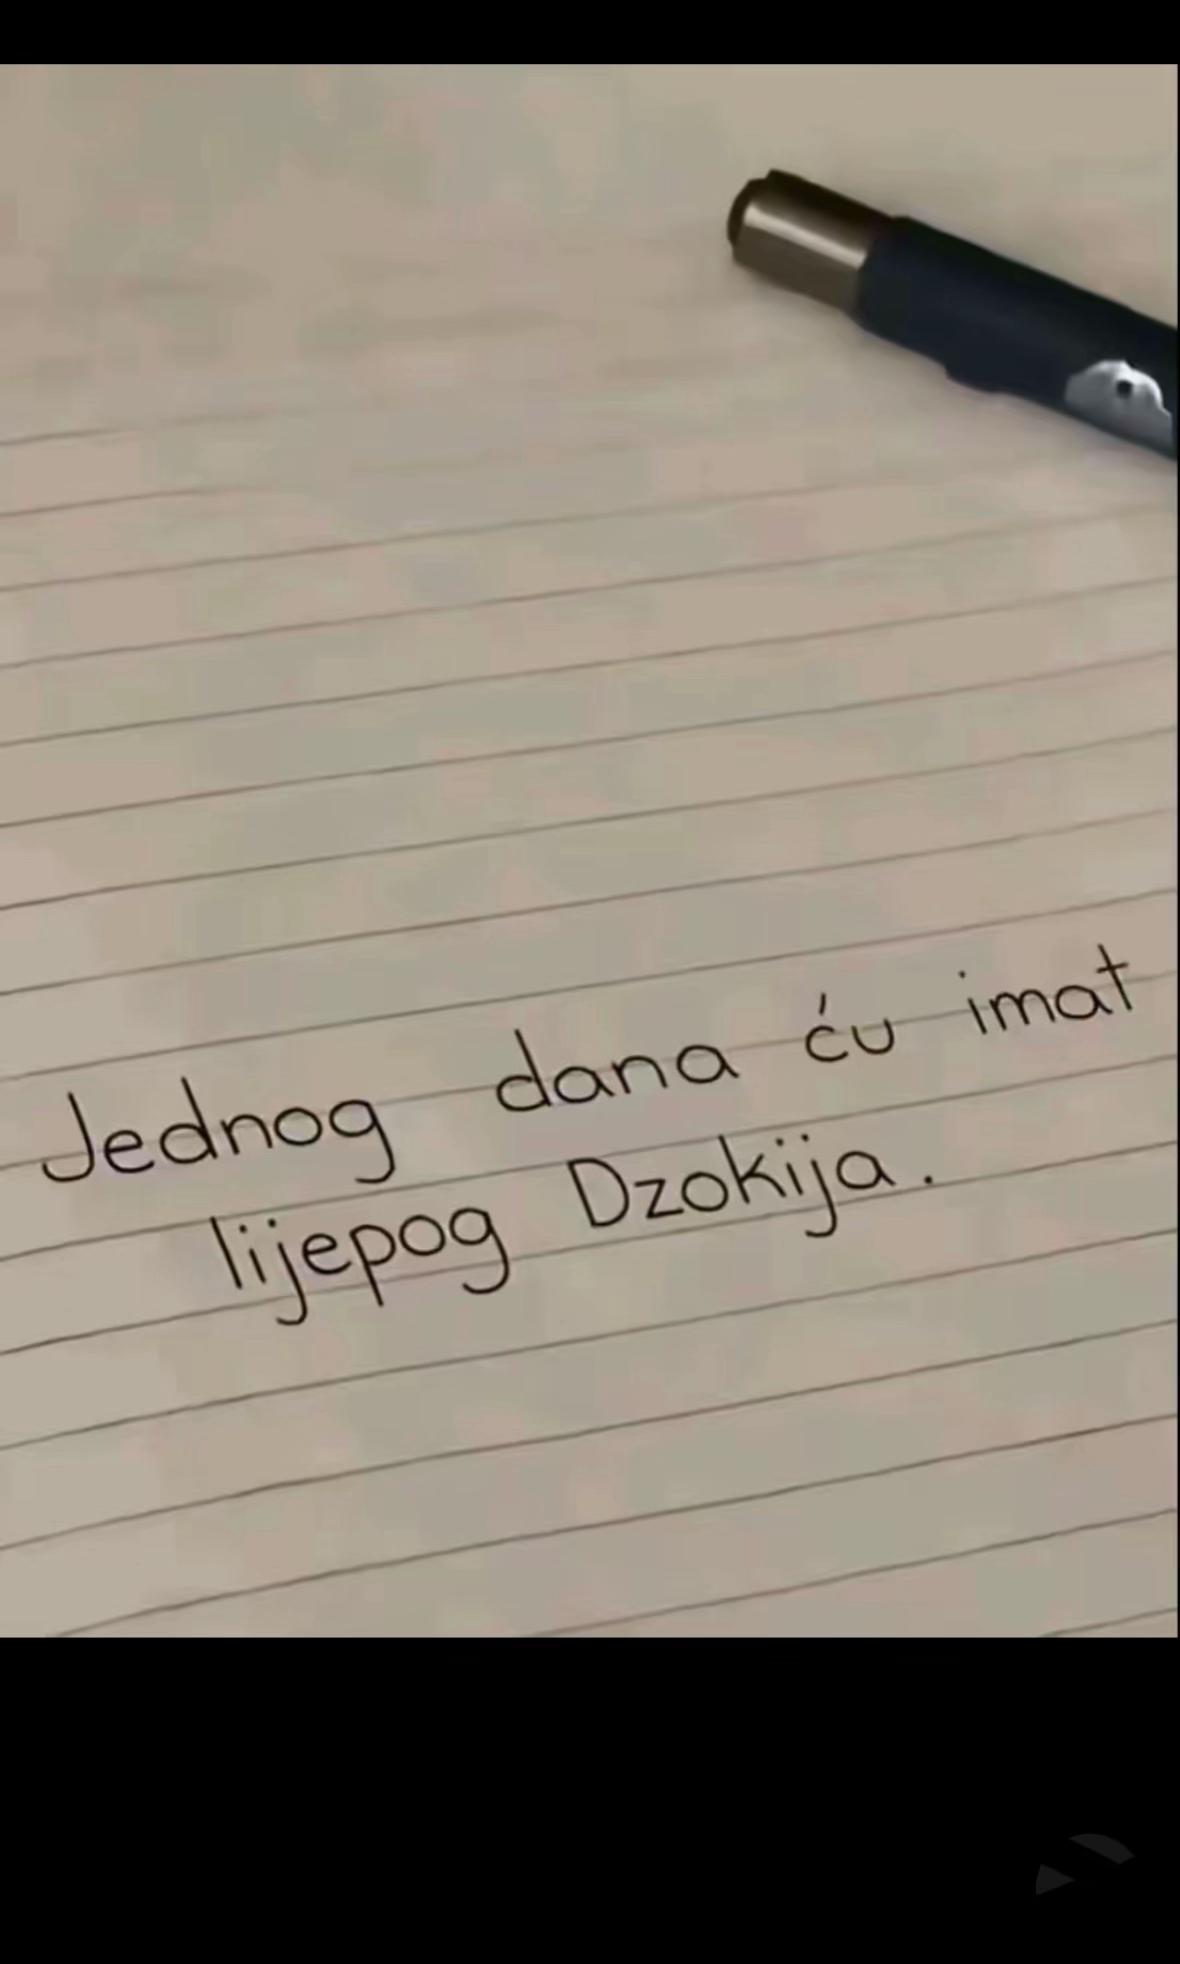 Jednog dana ću imat
lijepog Dzokija.